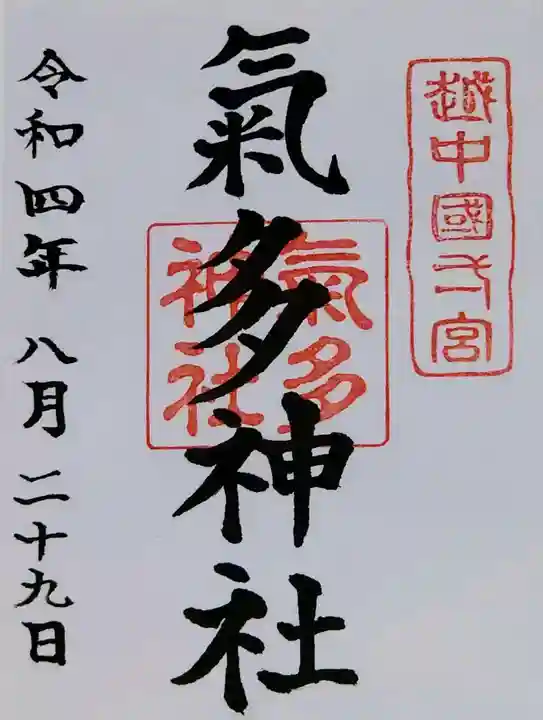 越中國一宮
氣多神社
氣多
神社
令和四年 八月 二十九日